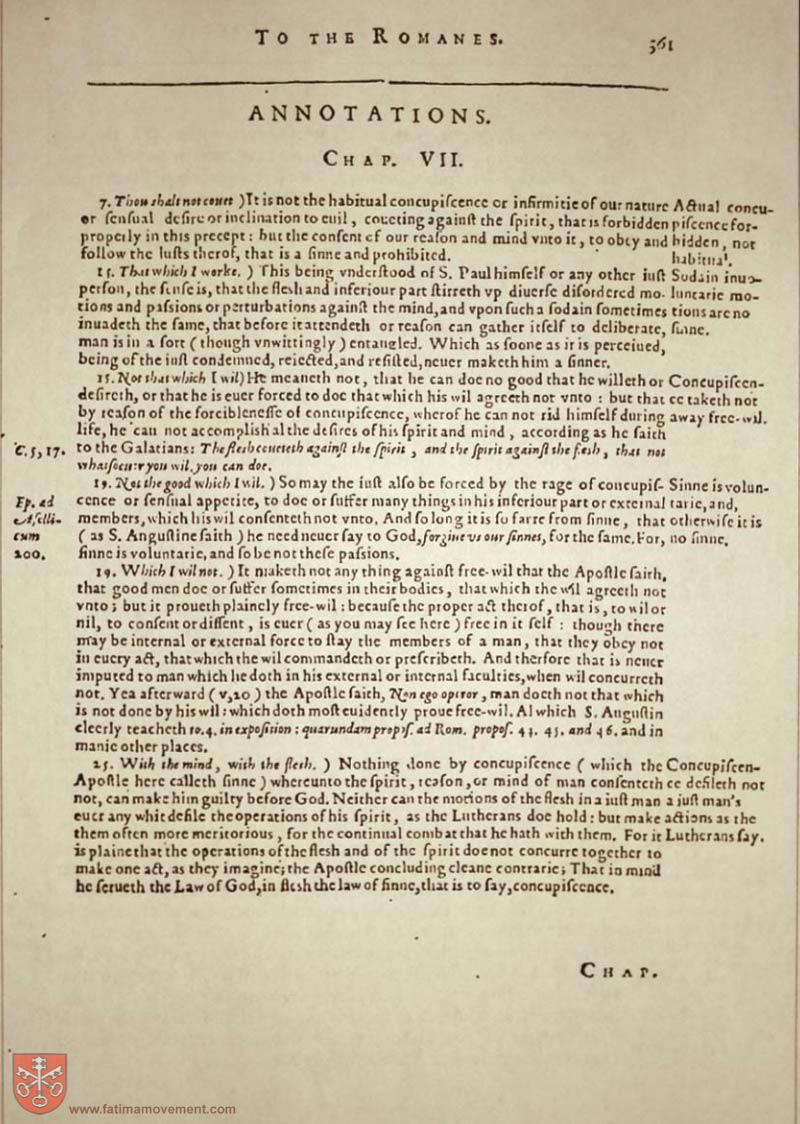 TO THE ROMANES.
561
ANNOTATIONS.
CHAP. VII.
7. Thou shalt not couet ) It is not the habitual concupiſcence or infirmitie of our nature
or ſenſual deſire or inclination to euil, coueting againſt the ſpirit, that is forbidden
properly in this precept: but the conſent of our reaſon and mind vnto it, to obey and
follow the luſts therof, that is a ſinne and prohibited.
Actual concu-
piſcence for-
bidden, not
habitual.
15. That which I worke. ) This being vnderſtood of S. Paul himſelf or any other iuſt
perſon, the ſenſe is, that the fleſh and inferiour part ſtirreth vp diuerſe diſordered mo-
tions and paſsions or perturbations againſt the mind, and vpon ſuch a ſodain ſometimes
inuadeth the ſame, that before it attendeth or reaſon can gather itſelf to deliberate,
man is in a ſort ( though vnwittingly ) entangled. Which as ſoone as it is perceiued,
being of the iuſt condemned, reiected, and reſiſted, neuer maketh him a ſinner.
Sodain inuo-
luntarie mo-
tions are no
ſinne.
15. Not that which I wil) He meaneth not, that he can doe no good that he willeth or
deſireth, or that he is euer forced to doe that which his wil agreeth not vnto : but that
by reaſon of the forcibleneſſe of concupiſcence, wherof he can not rid himſelf during
life, he can not accompliſh al the deſires of his ſpirit and mind , according as he ſaith
to the Galatians: The fleſh coueteth againſt the ſpirit , and the ſpirit againſt the fleſh, that not
whatſoeuer you wil, you can doe.
Concupiſcen-
ce taketh not
away free-wil.
C. 5, 17.
19. Not the good which I wil. ) So may the iuſt alſo be forced by the rage of concupiſ-
cence or ſenſual appetite, to doe or ſuffer many things in his inferiour part or external
members, which his wil conſenteth not vnto. And ſo long it is ſo farre from ſinne , that
( as S. Anguſtine ſaith ) he need neuer ſay to God, forgiue vs our ſinnes, for the ſame. For,
ſinne is voluntarie, and ſo be not theſe paſsions.
Sinne is volun-
tarie, and,
otherwiſe it is
no ſinne.
Ep. ad
Aſelli-
cum
200.
19. Which I wil not. ) It maketh not any thing againſt free-wil that the Apoſtle ſaith,
that good men doe or ſuffer ſometimes in their bodies, that which the wil agreeth not
vnto ; but it proueth plainely free-wil : becauſe the proper act therof, that is, to wil or
nil, to conſent or diſſent , is euer ( as you may ſee here ) free in it ſelf : though there
may be internal or external force to ſtay the members of a man, that they obey not
in euery act, that which the wil commandeth or preſcribeth. And therfore that is neuer
imputed to man which he doth in his external or internal faculties, when wil concurreth
not. Yea afterward ( v, 20 ) the Apoſtle ſaith, Non ego operor , man doeth not that which
is not done by his wil : which doth moſt euidently proue free-wil. Al which S. Auguſtin
cleerly teacheth to. 4. in expoſition : quarundam propoſ. ad Rom. propoſ. 43. 45. and 46. and in
manie other places.
25. With the mind, with the fleſh. ) Nothing done by concupiſcence ( which the
Apoſtle here calleth ſinne ) whereunto the ſpirit, reaſon, or mind of man conſenteth
not, can make him guilty before God. Neither can the motions of the fleſh in a iuſt man
euer any whit defile the operations of his ſpirit, as the Lutherans doe hold : but make
them often more meritorious , for the continual combat that he hath with them. For it
is plaine that the operations of the fleſh and of the ſpirit doe not concurre together to
make one act, as they imagine; the Apoſtle concluding cleane contrarie; That in mind
he ſerueth the Law of God, in fleſh the law of ſinne, that is to ſay, concupiſcence.
Concupiſcen-
ce defileth not
a juſt man's
actions as the
Lutherans ſay.
CHAP.
www.fatimamovement.com